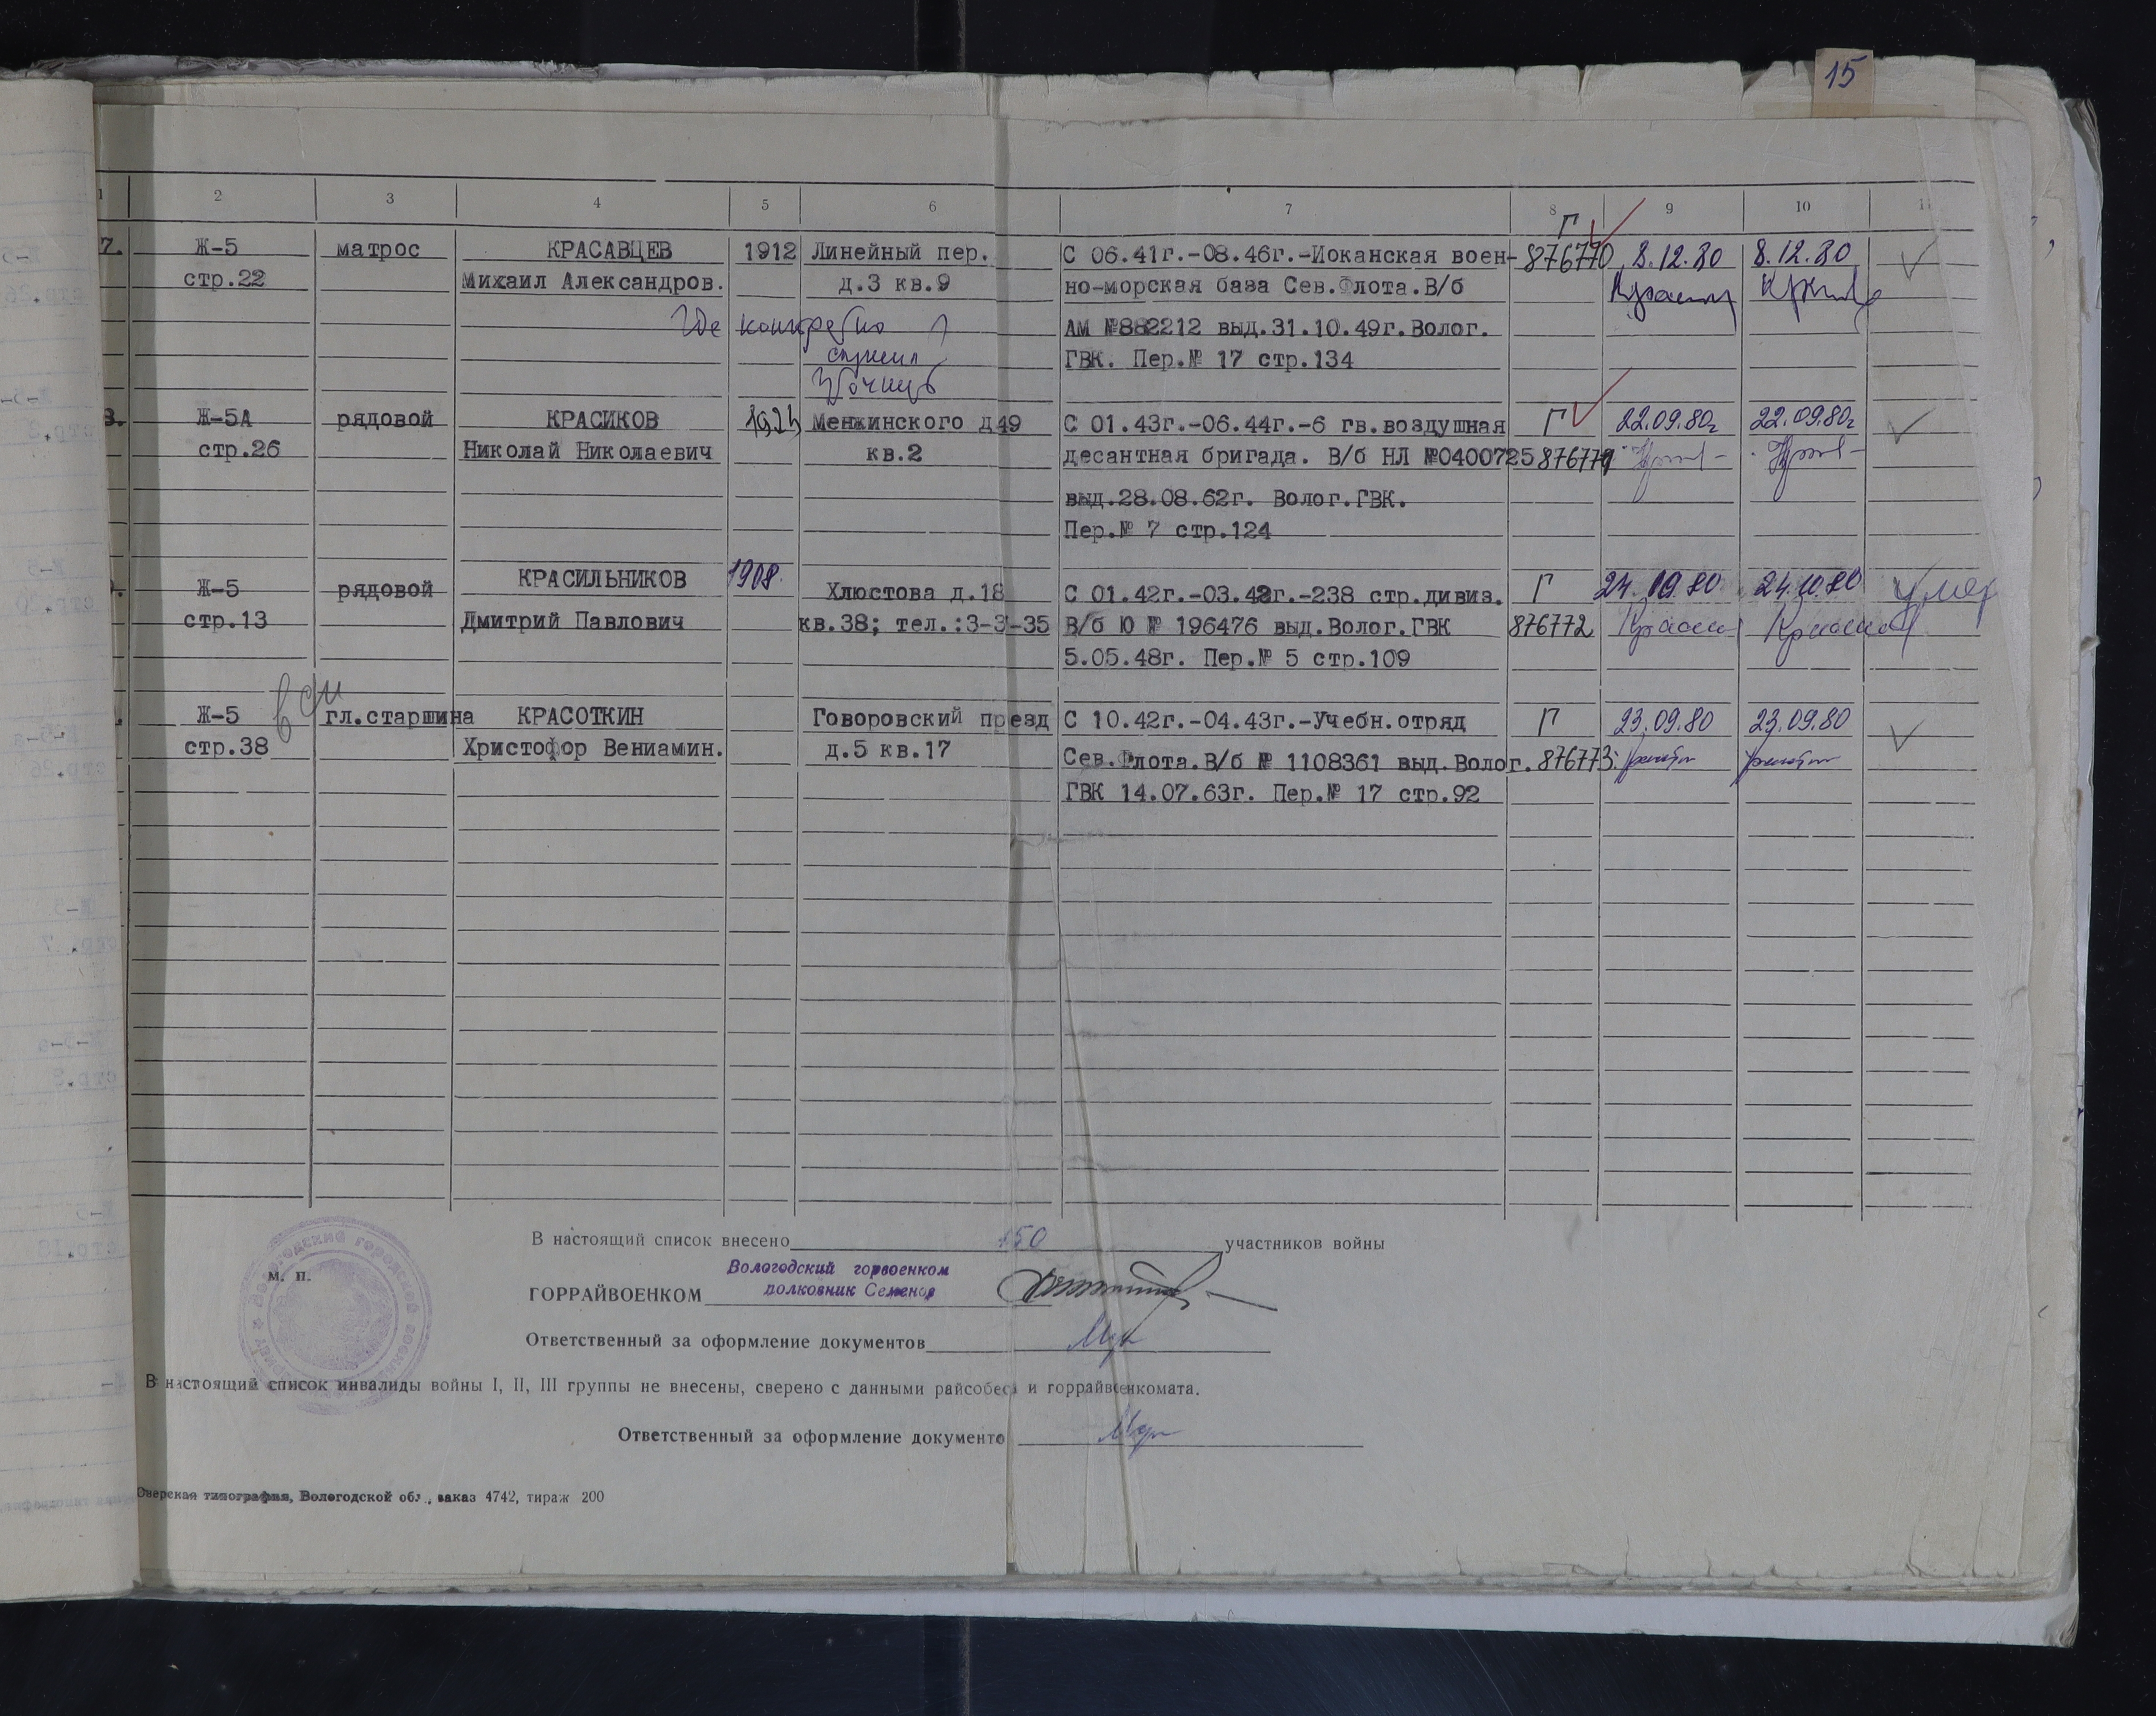 15
1 2 3 4 5 6 7 8 9 10 11
7. Ж-5 матрос КРАСАВЦЕВ 1912 Линейный пер. С 06.41г.-08.46г.-Иоканская воен- Г 876770 8.12.80 8.12.80
стр.22 Михаил Александров. д.3 кв.9 но-морская база Сев.Флота.В/б
Где конкретно АМ №882212 выд.31.10.49г.Волог.
служил ГВК. Пер.№ 17 стр.134
8. Ж-5А рядовой КРАСИКОВ Менжинского д49 С 01.43г.-06.44г.-6 гв.воздушная Г 22.09.80г 22.09.80г
стр.26 Николай Николаевич кв.2 десантная бригада. В/б НЛ №0400725
выд.28.08.62г. Волог.ГВК.
Пер.№ 7 стр.124
Ж-5 рядовой КРАСИЛЬНИКОВ 1908. Хлюстова д.18 С 01.42г.-03.42г.-238 стр.дивиз. Г 24.10.80 умер
стр.13 Дмитрий Павлович кв.38; тел.:3-3-35 В/б Ю № 196476 выд.Волог.ГВК 876772
5.05.48г. Пер.№ 5 стр.109
Ж-5 гл.старшина КРАСОТКИН Говоровский презд С 10.42г.-04.43г.-Учебн.отряд Г 23.09.80 23.09.80
стр.38 Христофор Вениамин. д.5 кв.17 Сев.Флота.В/б № 1108361 выд.Волог. 876773
ГВК 14.07.63г. Пер.№ 17 стр.92
В настоящий список внесено 150 участников войны
м. п.
Вологодский горвоенком
ГОРРАЙВОЕНКОМ полковник Семенов
Ответственный за оформление документов
В настоящий список инвалиды войны I, II, III группы не внесены, сверено с данными райсобеса и горрайвоенкомата.
Ответственный за оформление документо
типография, Вологодской обл., заказ 4742, тираж 200